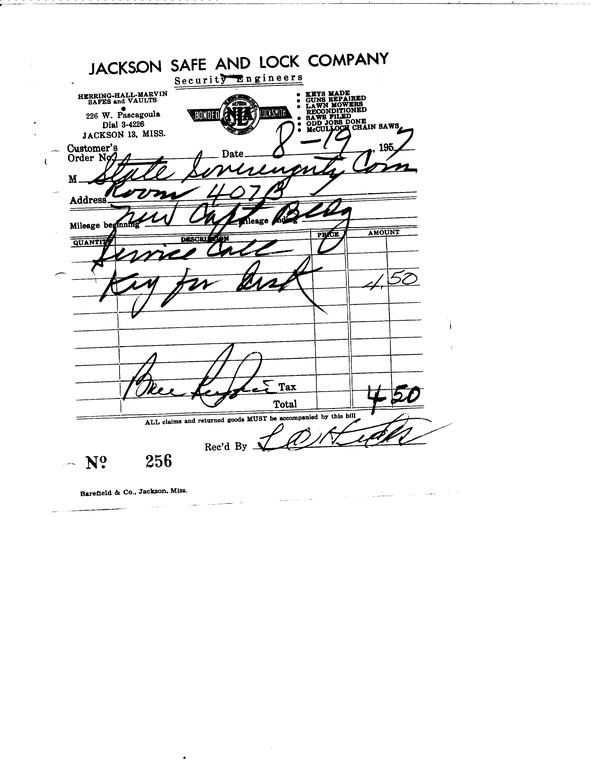 JACKSON SAFE AND LOCK COMPANY
Security Engineers
HERRING-HALL-MARVIN
SAFES and VAULTS
•
226 W. Pascagoula
Dial 3-4226
JACKSON 13, MISS.
BONDED NLA LOCKSMITH
• KEYS MADE
• GUNS REPAIRED
• LAWN MOWERS
RECONDITIONED
• SAWS FILED
• ODD JOBS DONE
• McCULLOCH CHAIN SAWS
Customer's
Order No. Date 8-19, 1957
M State Sovereignty Com
Address Room 407B
Mileage beginning New Capt Bldg Mileage ending
QUANTITY DESCRIPTION PRICE AMOUNT
Service Call
Key for Desk 4.50
Tax
Total 4 50
ALL claims and returned goods MUST be accompanied by this bill
Rec'd By
Nº 256
Barefield & Co., Jackson, Miss.